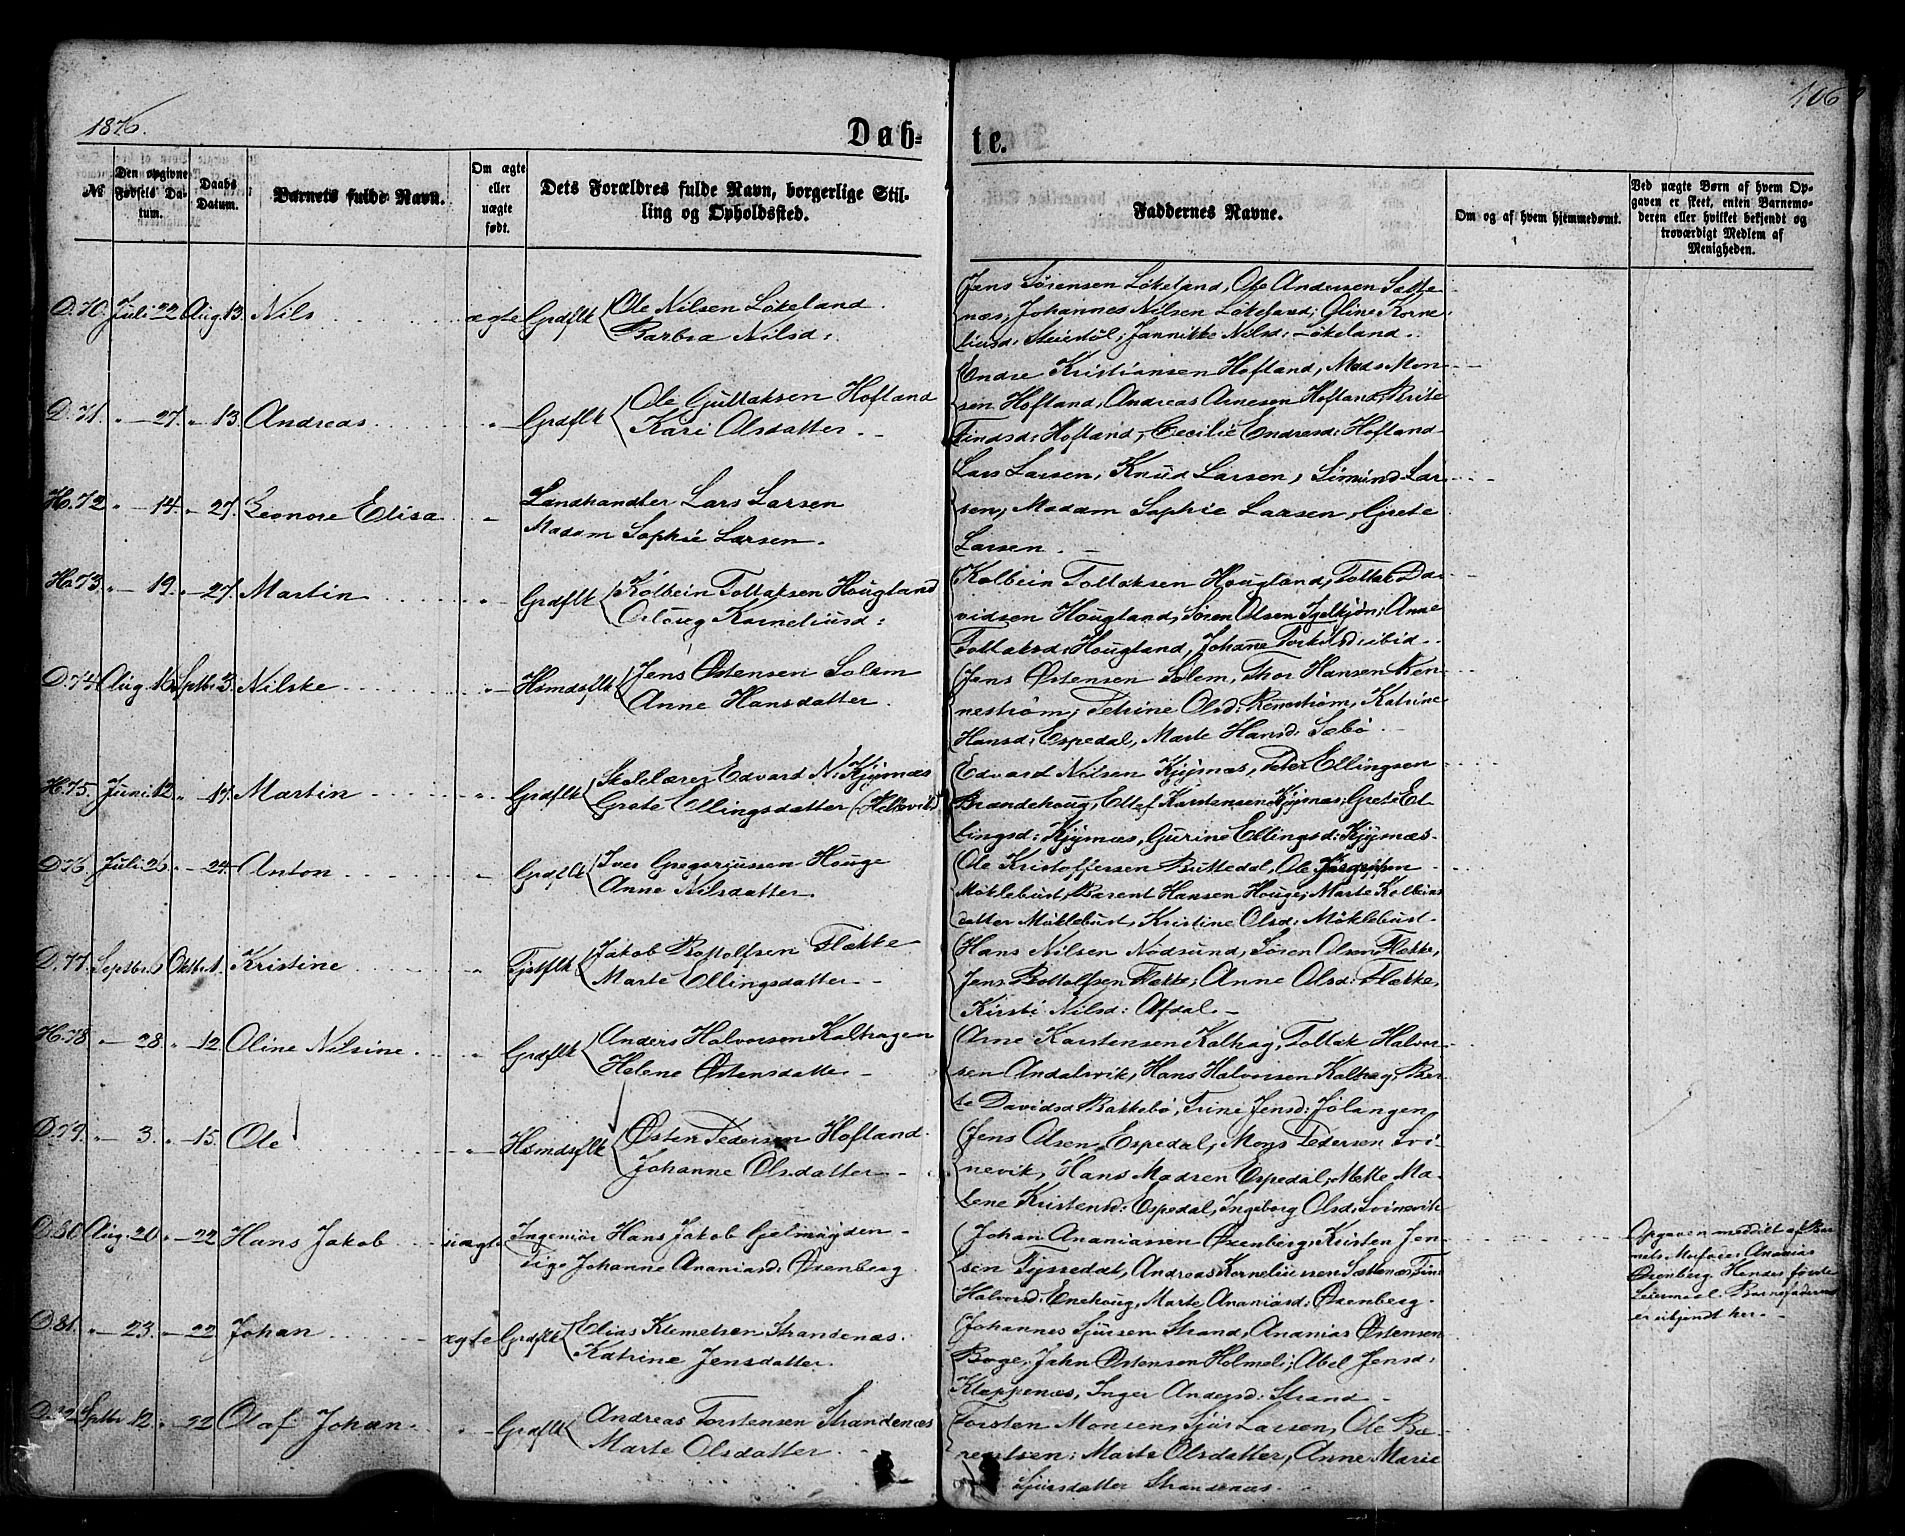 1876.
106
Døb-
te.
№
Den opgivne Fødsels Datum.
Daabs Datum.
Barnets fulde Navn.
Om ægte eller uægte født.
Dets Forældres fulde Navn, borgerlige Stilling og Opholdssted.
Faddernes Navne.
Om og af hvem hjemmedøbt.
Ved uægte Børn af hvem Opgaven er skeet, enten Barnemoderen eller hvilket bekjendt og troværdigt Medlem af Menigheden.
D. 70. Juli 22 Aug. 13. Nils ægte Grdflk Ole Nilsen Løkeland
Barbra Nilsd:
Jens Sørensen Løkeland, Ole Andersen Sætte
næs, Johannes Nilsen Løkeland; Oline Korne-
liusd: Steiestøl; Jannikke Nilsd: Løkeland.
D. 71. " 27. " 13. Andreas " Grdflk Ole Guttaksen Hofland
Kari Olsdatter.
Endre Kristiansen Hofland, Mads Mon-
sen Hofland, Andreas Arnesen Hofland, Brite
Findsd: Hofland, Cecilie Endresd: Hofland
H. 72 " 14. " 27. Leonore Elisa " Landhandler Lars Larsen
Madam Sophie Larsen.
Lars Larsen, Knud Larsen, Simund Lar-
sen, Madam Sophie Larsen, Grete
Larsen.
H. 73 " 19. " 27. Martin " Grdflk Kolbein Tollaksen Hougland
Orloug Korneliusd:
Kolbein Tollaksen Hougland, Tollak Da-
vidsen Hougland, Søren Olsen Igelkjøn; Anne
Tollaksd: Hougland, Johanne Torkilsd: ibid.
D. 74 Aug. 16 Septbr 3. Nilske " Hsmdsflk Jens Østensen Solem
Anne Hansdatter.
Jens Østensen Solem, Thor Hansen Ren-
neström, Petrine Olsd: Renneström, Katrine
Hansd: Espedal, Marte Hansd: Sæbø.
H. 75. Juni 12 " 17. Martin " Grdflk Skolelærer Edvard N. Kjyrnæs
Grete Ellingsdatter
Edvard Nilsen Kjyrnæs, Peder Ellingsen
Brandehoug, Ellef Karstensen Kjyrnæs; Grete El-
lingsd: Kjyrnæs, Gurine Ellingsd: Kjyrnæs.
D. 76. Juli 26 " 24 Anton " Grdflk Iver Gregoriussen Houge
Anne Nilsdatter.
Ole Kristoffersen Buttedal, Ole
Møklebust, Barent Hansen Houge; Marte Kolbeins-
datter Møklebust, Kristine Olsd: Møklebust.
D. 77. Septbr. 6 Oktbr. 1. Kristine " Tjstflk Jakob Bottolfsen Flække
Marte Ellingsdatter.
Hans Nilsen Nödsund, Søren Olsen Flække,
Jens Bottolfsen Flække; Anne Olsd: Flække,
Kirsti Nilsd: Afdal.
H. 78. " 28 " 12. Oline Nilsine " Grdflk Anders Halvorsen Kalhagen
Helene Østensdatter
Arne Karstensen Kalhag, Tollak Halvor-
sen Andalsvik, Hans Halvorsen Kalhag, Ber-
te Davidsd Bakkebø, Trine Jensd: Jølangen
D. 79. " 3. " 15. Ole " Hsmdsflk Østen Pedersen Hofland.
Johanne Olsdatter
Jens Olsen Espedal, Mons Pedersen Svi-
nevik, Hans Madsen Espedal, Mette Ma-
lene Kristensd: Espedal, Ingeborg Olsd: Svinevik
D. 80 Aug. 20 " 22 Hans Jakob uægte Ingeniør Hans Jakob Gjelmuyden
Pige Johanne Ananiasd: Øxenberg
Johan Ananiassen Øxenberg, Kristen Jen-
sen Tysseda l, Andreas Korneliussen Sættenæs, Tine
Halvorsd: Enehoug, Marte Ananiasd, Øxenberg.
Opgaven meddelt af Bar-
nets Morfader Ananias
Øxenberg. Hendes første
Leiermaal. Barnefaderen
er ukjendt her.
D. 81. " 23. " 22 Johan ægte Grdflk Elias Klemetsen Strandenæs.
Katrine Jensdatter.
Johannes Sjursen Strand, Ananias Østensen
Berge, Jahn Østensen Holmeli; Abel Jensd:
Kleppenæs, Inger Andersd: Strand
D. 82 Septbr 12. " 22 Olaf Johan " Grdflk Andreas Torstensen Strandenæs
Marte Olsdatter.
Torsten Monsen, Sjur Larsen, Ole Be-
rentsen; Marte Olsdatter, Anne Marie
Sjursdatter Strandenæs.